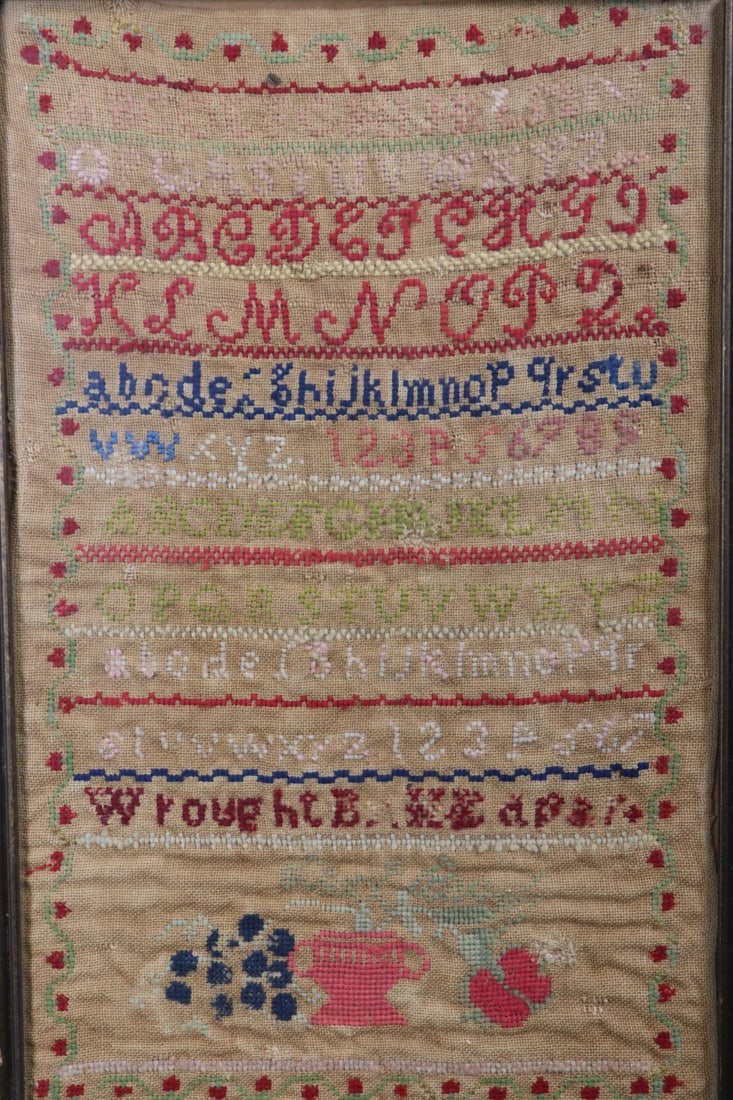 O P Q R S T U V W X Y Z
A B C D E F G H I J
K L M N O P Q
a b c d e f g h i j k l m n o p q r s t u
v w x y z. 1 2 3 4 5 6 7 8 9
A B C D E F G H I J K L M N
O P Q R S T U V W X Y Z
a b c d e f g h i j k l m n o p q r
s t u v w x y z 1 2 3 4 5 6 7
Wrought